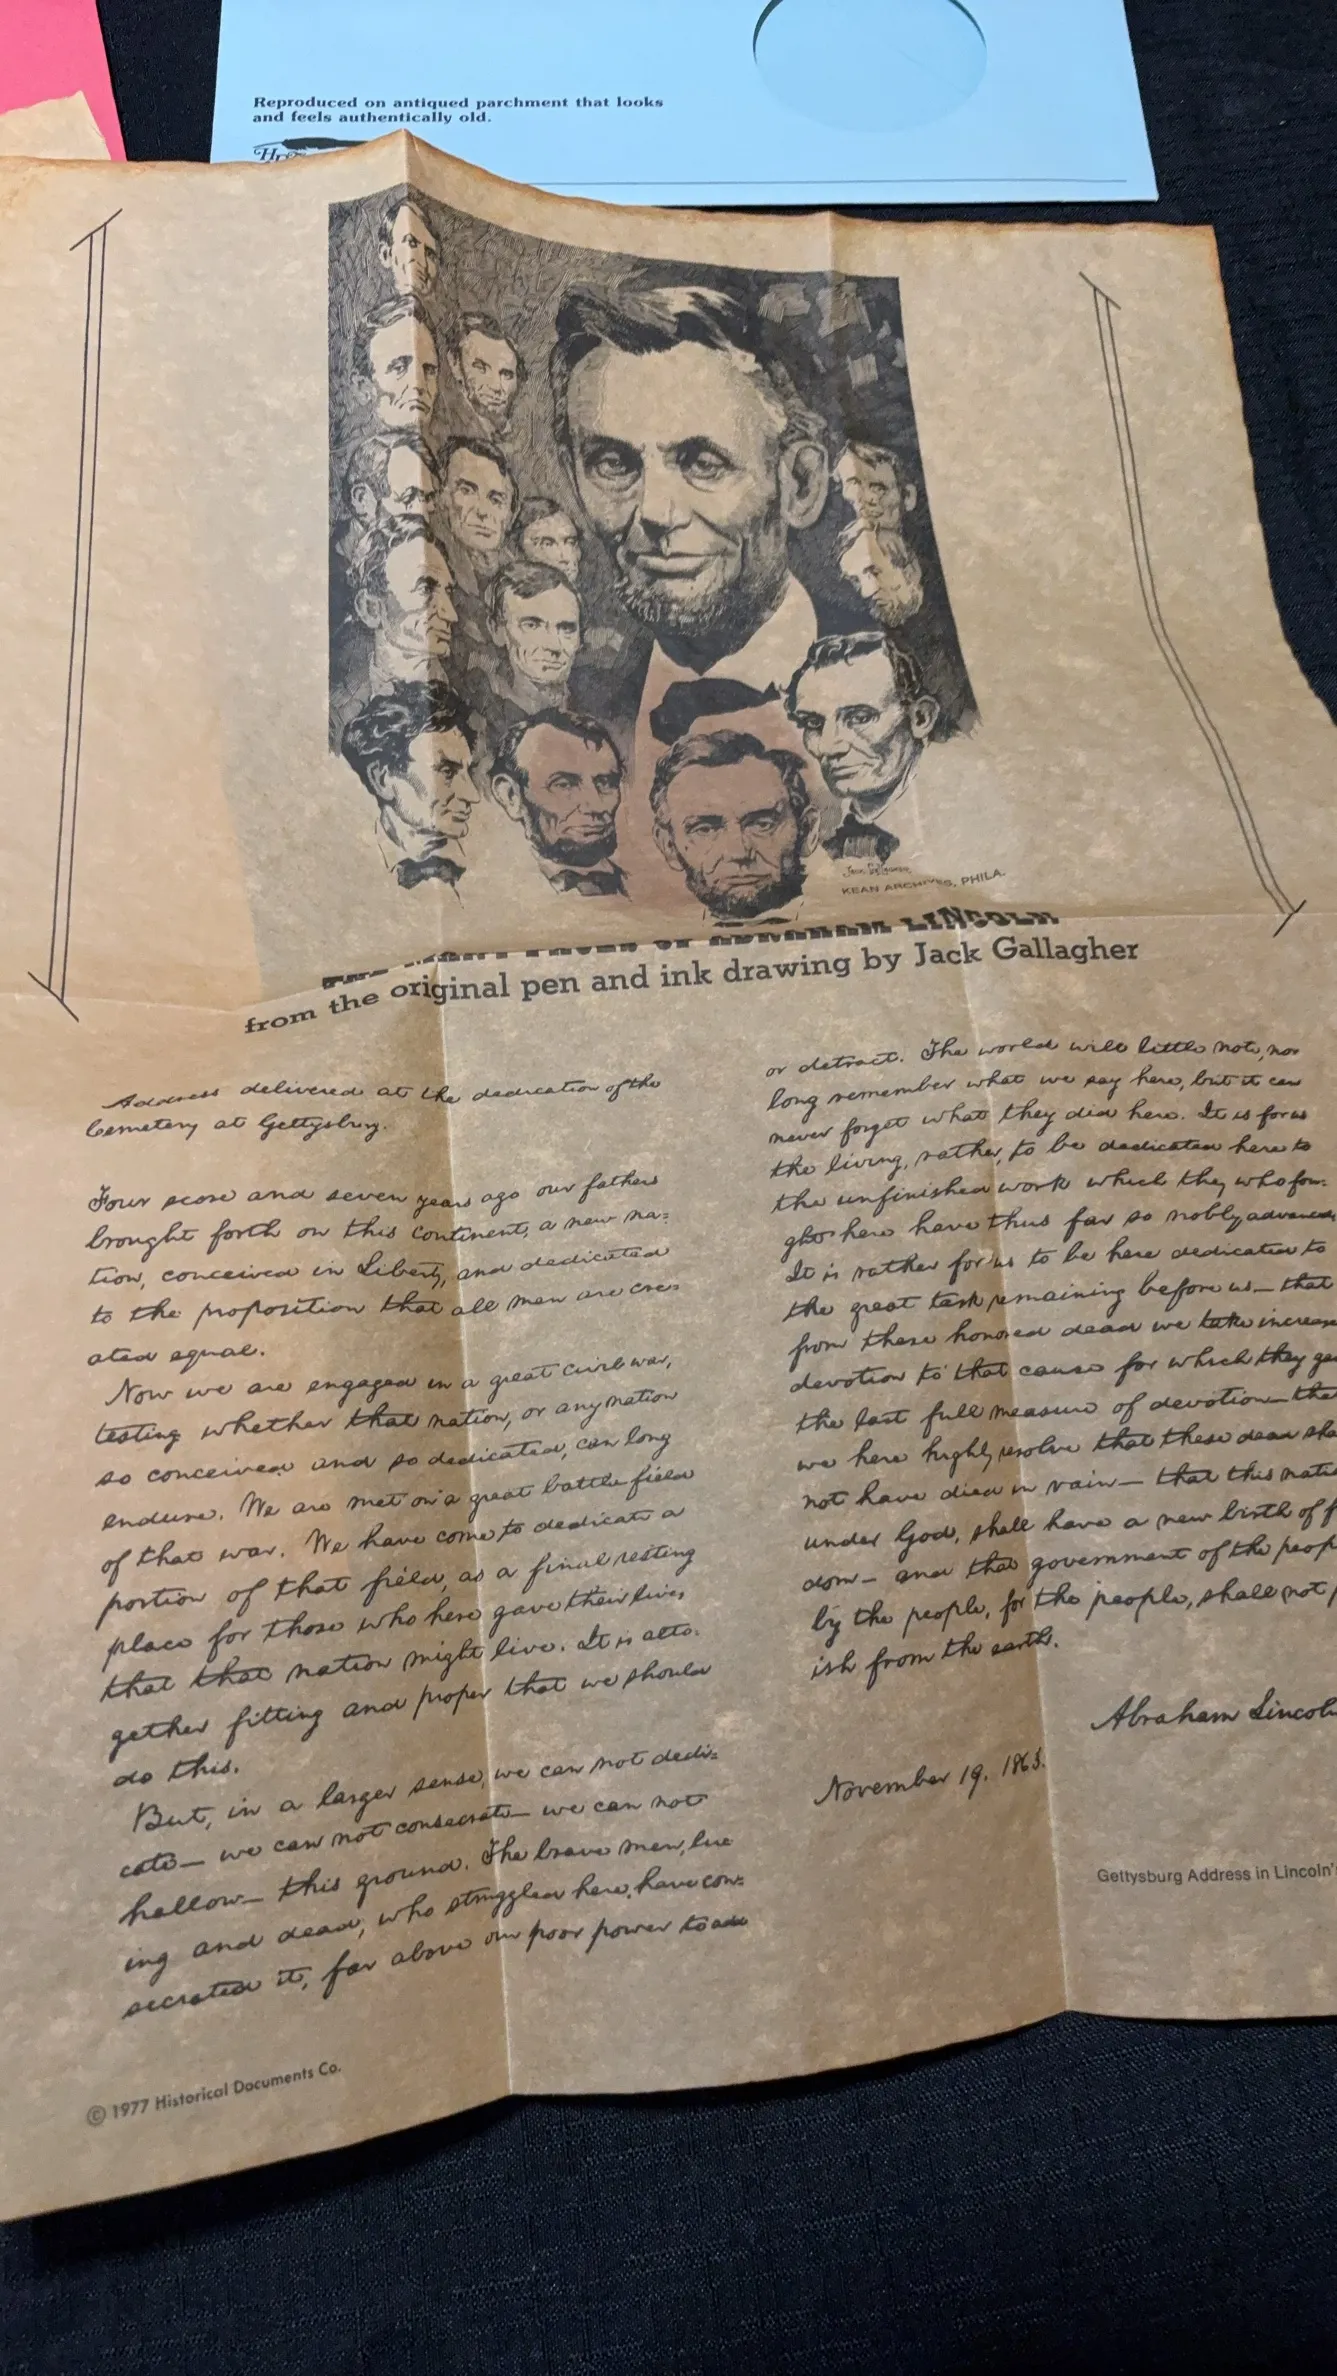 Reproduced on antiqued parchment that looks
and feels authentically old.
KEAN ARCHIVES, PHILA.
THE MANY FACES OF ABRAHAM LINCOLN
from the original pen and ink drawing by Jack Gallagher
Address delivered at the dedication of the
Cemetery at Gettysburg.
Four score and seven years ago our fathers
brought forth on this continent, a new na=
tion, conceived in Liberty, and dedicated
to the proposition that all men are cre=
ated equal.
Now we are engaged in a great civil war,
testing whether that nation, or any nation
so conceived and so dedicated, can long
endure. We are met on a great battle-field
of that war. We have come to dedicate a
portion of that field, as a final resting
place for those who here gave their lives
that that nation might live. It is alto-
gether fitting and proper that we should
do this.
But, in a larger sense, we can not dedi=
cate— we can not consecrate— we can not
hallow— this ground. The brave men, liv=
ing and dead, who struggled here, have con=
secrated it, far above our poor power to add
© 1977 Historical Documents Co.
or detract. The world will little note, nor
long remember what we say here, but it can
never forget what they did here. It is for us
the living, rather, to be dedicated here to
the unfinished work which they who fou-
ght here have thus far so nobly advanced
It is rather for us to be here dedicated to
the great task remaining before us— that
from these honored dead we take increas
devotion to that cause for which they ga
the last full measure of devotion— tha
we here highly resolve that these dead sha
not have died in vain— that this natio
under God, shall have a new birth of f
dom— and that government of the peop
by the people, for the people, shall not p
ish from the earth.
Abraham Lincoln
November 19, 1863.
Gettysburg Address in Lincoln's